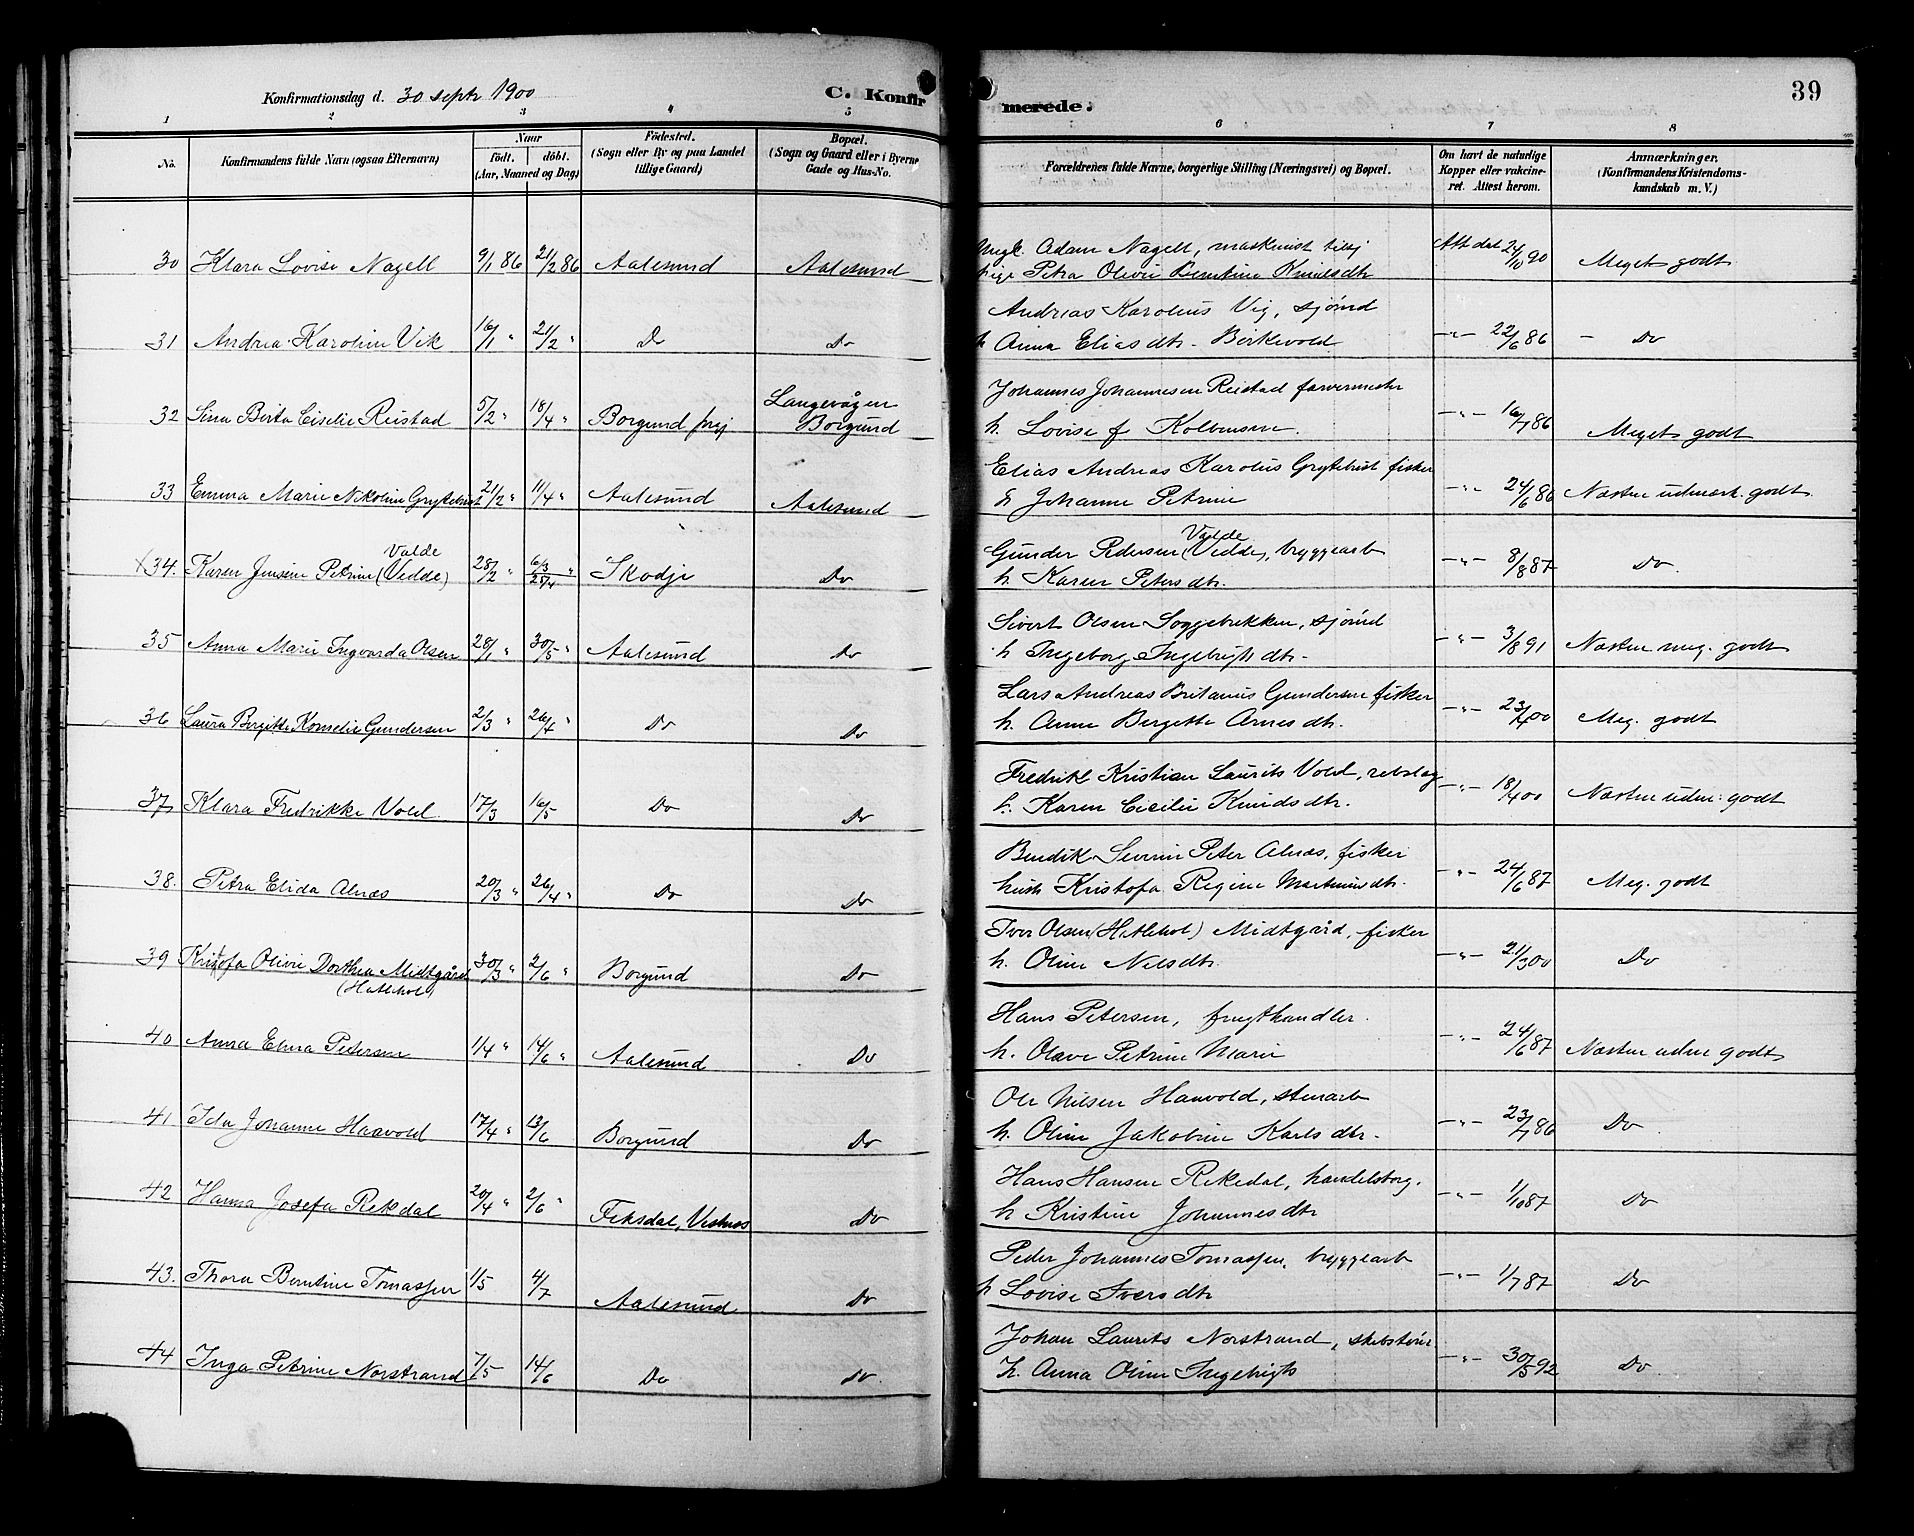 Konfirmationsdag d. 30 septr 1900
C. Konfir
merede.
39
1 2 3 4 5 6 7 8
No. Konfirmandens fulde Navn (ogsaa Efternavn) Naar födt. döbt. (Aar, Maaned og Dag) Födested. (Sogn eller By og paa Landet tillige Gaard) Bopæl. (Sogn og Gaard eller i Byerne Gade og Hus-No. Forældrenes fulde Navne, borgerlige Stilling (Næringsvei) og Bopæl. Om havt de naturlige Kopper eller vakcineret. Attest herom. Anmærkninger. (Konfirmandens Kristendomskundskab m. V.)
30 Klara Lovise Nagell 9/1 86 21/2 86 Aalesund Aalesund Ungk. Adam Nagell, maskinist
Pige Petra Olivi Berntine Knudsdtr Att dat 24/10 90 Meget godt
31 Andrea Karoline Vik 16/1 " 21/2 " Do Do Andreas Karolius Vig, sjömd
h Anna Eliasdtr Birkevold -"- 22/6 86 - Do
32 Sina Birta Cisilie Reistad 5/2 " 18/4 " Borgund prgj Langevågen Borgund Johannes Johannesen Reistad farvermestr
h. Lovise f Kolbensen. -"- 16/7 86 Meget godt
33 Emma Marie Nikoline Grytebust 21/2 " 11/4 " Aalesund Aalesund Elias Andreas Karolus Grytebust fisker
h Johanne Petrine -"- 24/6 86 Næsten udmærk. godt
34. Karen Jensine Petrine (Vedde) Valde 28/2 " 6/3 25/4 " Skodje Do Gunder Pedersen (Vedde), Valde bryggearb
h. Karen Petersdtr. -"- 8/8 87 Do.
35 Anna Marie Ingvarda Olsen 28/1 " 30/5 " Aalesund Do Sivert Olsen Soggebekken, sjömd
h Ingeborg Ingebrigtsdtr. -"- 3/8 91 Næsten meg. godt
36 Laura Birgitte Kornelie Gundersen 2/3 " 26/4 " Do Do Lars Andreas Britanius Gundersen fisker
h. Anne Birgitte Arnesdtr. -"- 23/4 00 Meg. godt
37 Klara Fredrikke Vold. 17/3 16/5 Do Do Fredrik Kristian Laurits Vold, rebslag
h. Karen Cicilie Knudsdtr. -"- 18/4 00 Næsten udm. godt
38. Petra Elida Alnæs 20/3 " 26/4 " Do Do Bendik Severin Peter Alnæs, fisker
hust Kristofa Regine Martinusdtr. -"- 24/6 87 Meg. godt
39 Kristofa Olivi Dorthea Midtgård (Hatlehol) 30/3 " 2/6 " Borgund Do Iver Olsen (Hatlehol) Midtgård, fisker
h. Oline Nilsdtr. -"- 21/3 00 Do
40 Anna Elina Petersen 1/4 " 14/6 " Aalesund Do Hans Petersen, frugthandler.
h. Olave Petrine Marie -"- 24/6 87 Næsten udm godt
41 Ida Johanne Haavold 17/4 " 13/6 Borgund Do Ole Nilsen Haavold, stenarb
h. Oline Jakobine Karlsdtr. -"- 23/7 86 Do
42 Hanna Josefa Rekdal 20/4 " 2/6 " Feksdal, Vestnes Do Hans Hansen Rekedal, handelsborg.
h Kristine Johannesdtr -"- 1/10 87 Do
43. Thora Berntine Tomassen 1/5 4/7 Aalesund Do Peder Johannes Tomassen, bryggearb
h Lovise Iversdtr -"- 1/7 87 Do
44 Inga Petrine Norstrand 7/5 14/6 Do Do Johan Laurits Norstrand, skibstöm
h. Anna Oline Ingebrigts -"- 30/5 92 Do